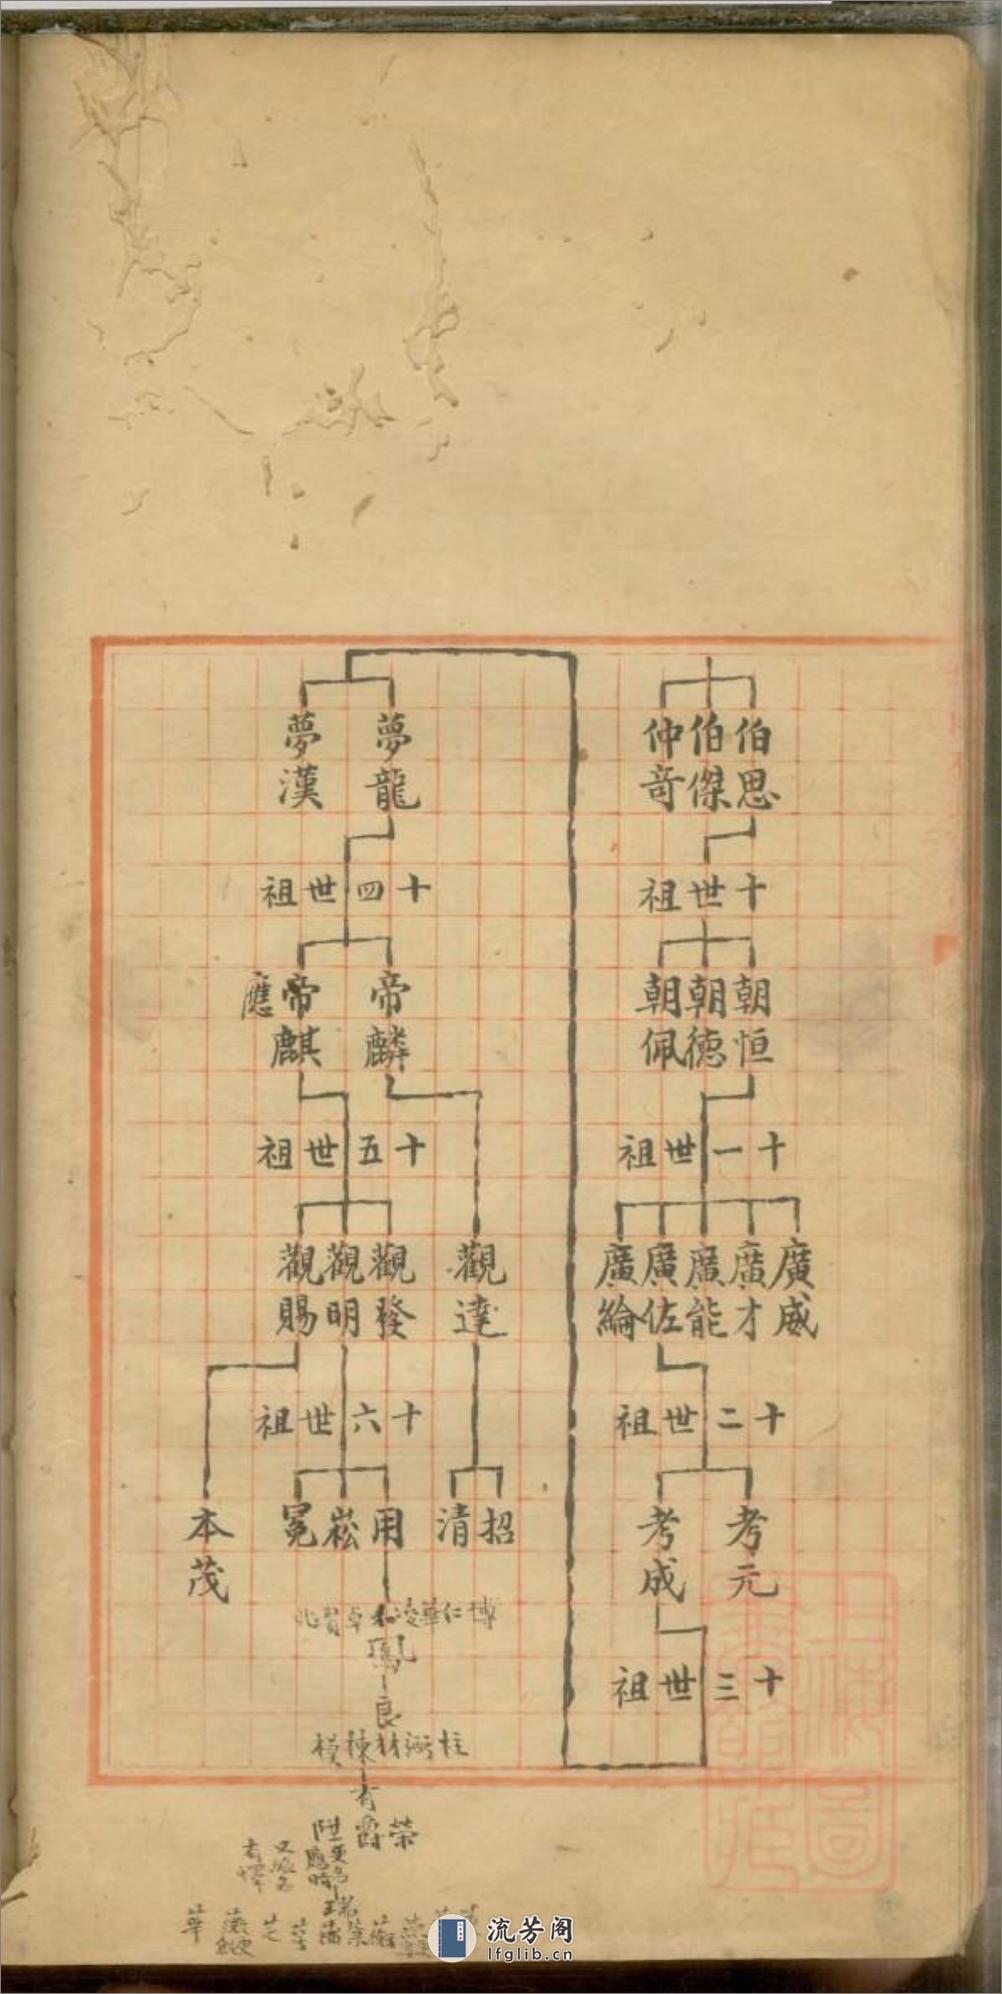 伯思
伯傑
仲奇
十世祖
朝恒
朝德
朝佩
十一世祖
廣威
廣才
廣能
廣佐
廣綸
十二世祖
考元
考成
十三世祖
夢龍
夢漢
十四世祖
帝麟
帝麒
應
十五世祖
觀達
觀發
觀明
觀賜
十六世祖
招
清
用
崧
冕
本茂
博仁華凌 卓習兆
鳳
良
柱 材棟模
有
榮
爵
陞
更名應時
又派名
瑞
流芳阁
lfglib.cn